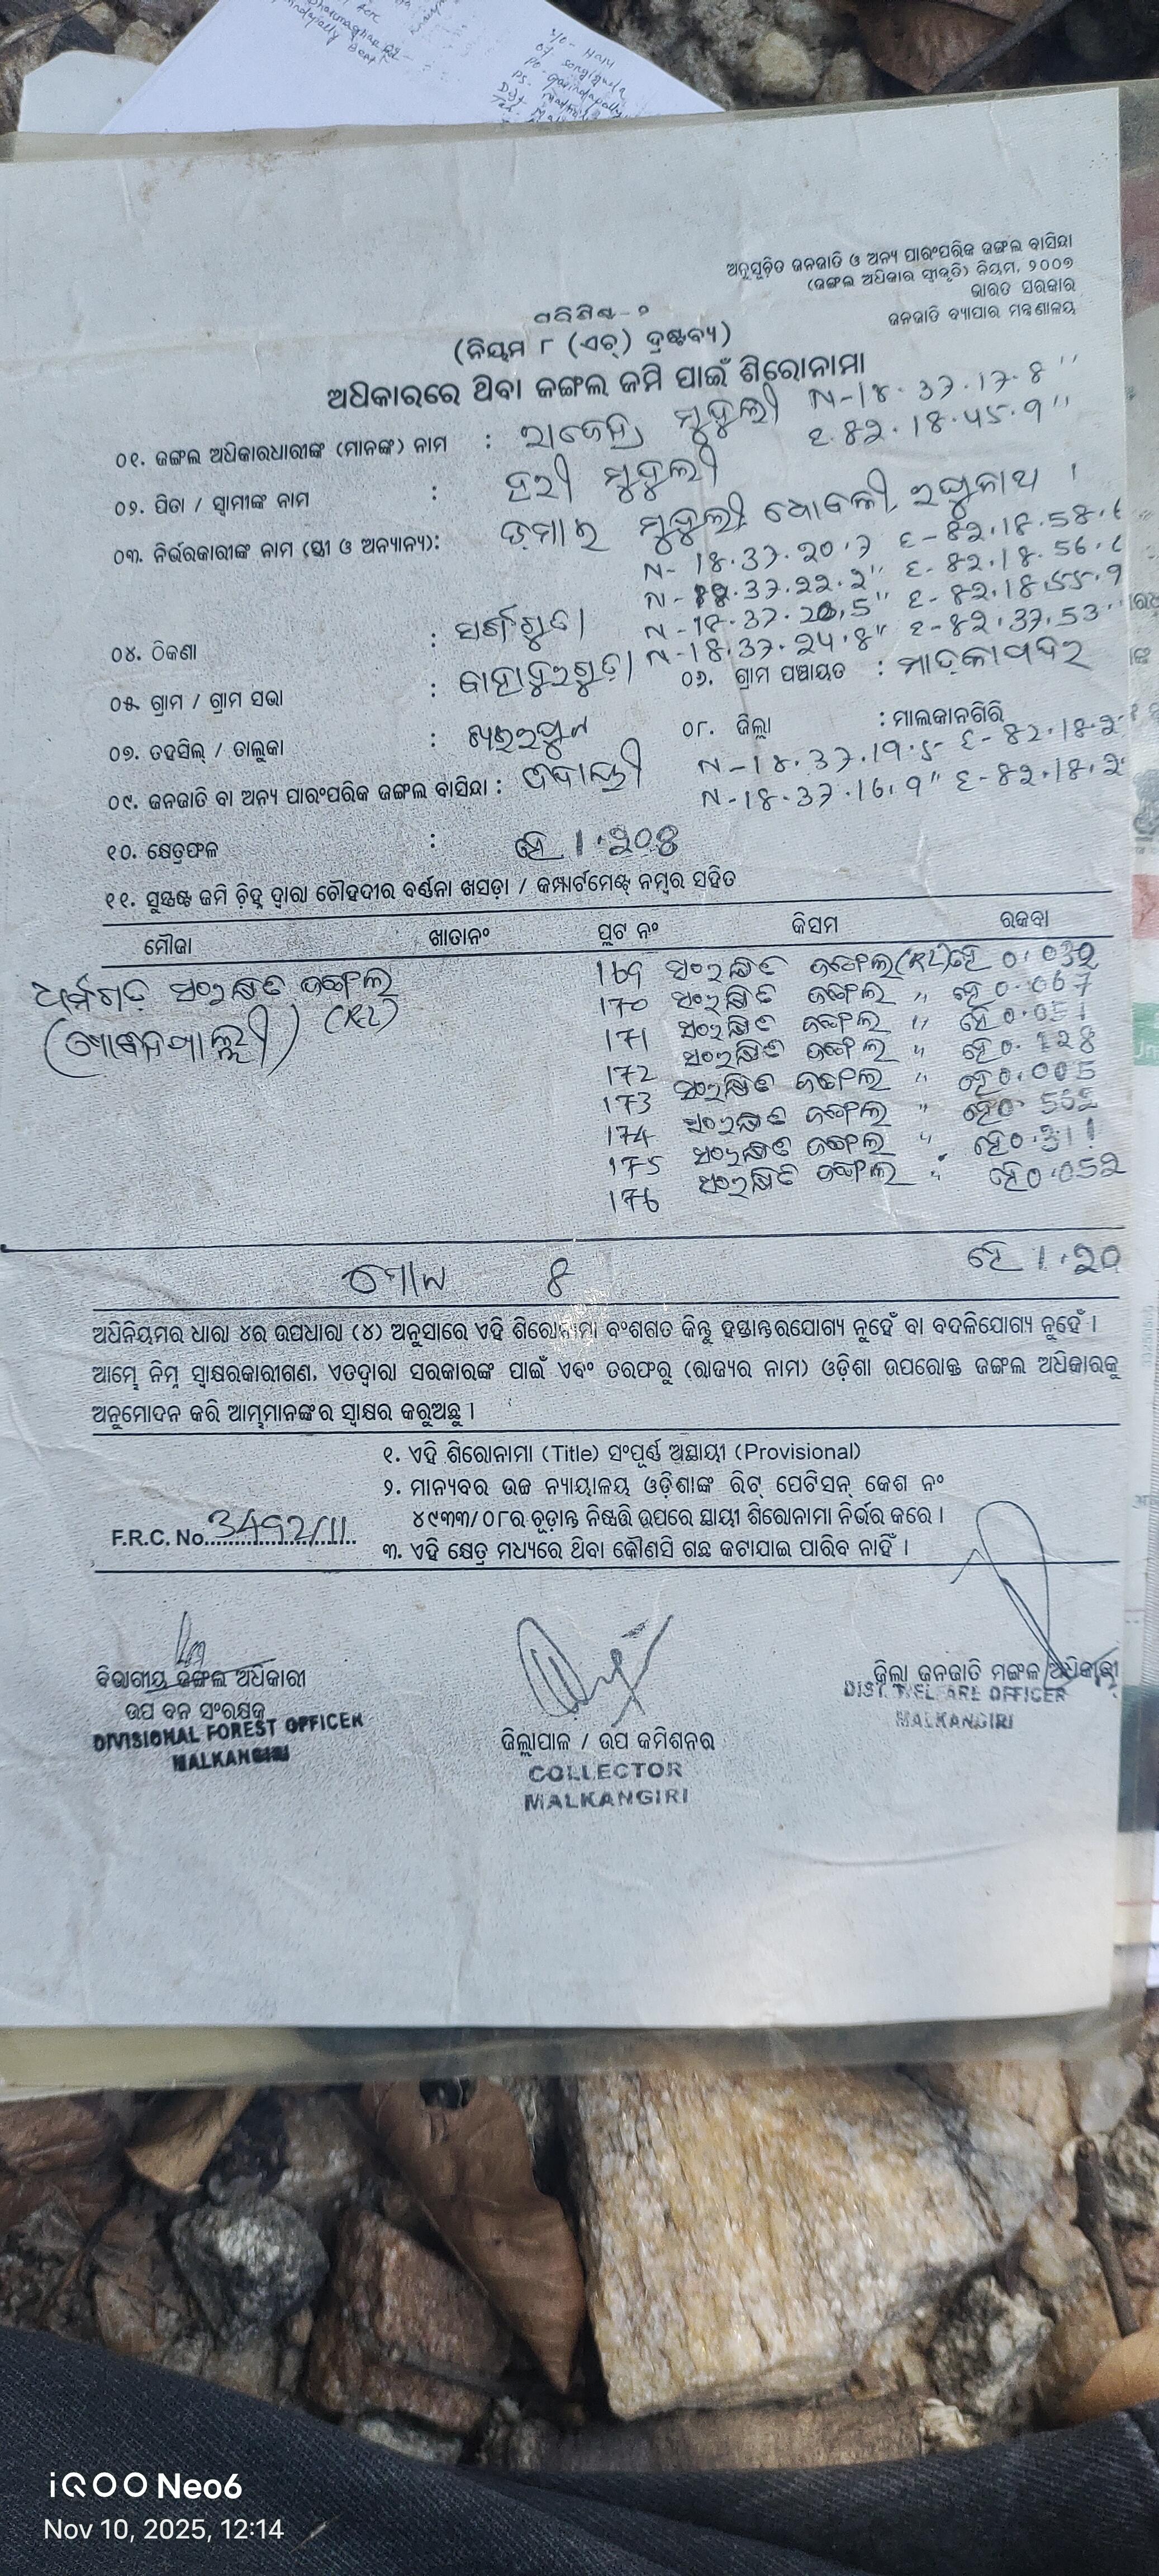 S/o- Hari
Of Songiguda
Po- Govindapally
ଅନୁସୂଚିତ ଜନଜାତି ଓ ଅନ୍ୟ ପାରଂପରିକ ଜଙ୍ଗଲ ବାସିନ୍ଦା
(ଜଙ୍ଗଲ ଅଧିକାର ସ୍ୱୀକୃତି) ନିୟମ, ୨୦୦୭
ଭାରତ ସରକାର
ଜନଜାତି ବ୍ୟାପାର ମନ୍ତ୍ରଣାଳୟ
ପରିଶିଷ୍ଟ - ୨
(ନିୟମ ୮ (ଏଚ୍) ଦ୍ରଷ୍ଟବ୍ୟ)
ଅଧିକାରରେ ଥିବା ଜଙ୍ଗଲ ଜମି ପାଇଁ ଶିରୋନାମା
N-18. 37. 17. 8"
୦୧. ଜଙ୍ଗଲ ଅଧିକାରଧାରୀଙ୍କ (ମାନଙ୍କ) ନାମ : ରାଜେନ୍ଦ୍ର ମୁଦୁଲୀ E. 82. 18. 45. 9"
୦୨. ପିତା / ସ୍ୱାମୀଙ୍କ ନାମ : ହରୀ ମୁଦୁଲୀ
୦୩. ନିର୍ଭରକାରୀଙ୍କ ନାମ (ସ୍ତ୍ରୀ ଓ ଅନ୍ୟାନ୍ୟ): ଡମାଇ ମୁଦୁଲୀ, ଧୋବଳୀ, ରଘୁନାଥ ।
N- 18.37.20.7 E-82.18.58.
N- 18.37.22.2" E-82.18.56.
N-18.37.20.5" E-82.18.55.9
୦୪. ଠିକଣା :
N-18.37.24.8" E-82.37.53.
୦୫. ଗ୍ରାମ / ଗ୍ରାମ ସଭା : ବାହାଦୁରଗୁଡ଼ା ୦୬. ଗ୍ରାମ ପଞ୍ଚାୟତ : ମାଡ଼କାପଦର
୦୭. ତହସିଲ୍ / ତାଲୁକା : ଖଇରପୁଟ ୦୮. ଜିଲ୍ଲା : ମାଲକାନଗିରି
N-18.37.19.5 E-82.18.2
୦୯. ଜନଜାତି ବା ଅନ୍ୟ ପାରଂପରିକ ଜଙ୍ଗଲ ବାସିନ୍ଦା : ଗଦାବା
N-18.37.16.9" E-82.18.2
୧୦. କ୍ଷେତ୍ରଫଳ : ହେ 1.208
୧୧. ସୁସ୍ପଷ୍ଟ ଜମି ଚିହ୍ନ ଦ୍ୱାରା ଚୌହଦୀର ବର୍ଣ୍ଣନା ଖସଡ଼ା / କମ୍ପାର୍ଟମେଣ୍ଟ ନମ୍ବର ସହିତ
ମୌଜା ଖାତାନଂ ପ୍ଲଟ ନଂ କିସମ ରକବା
ଧର୍ମଗଡ଼ ସଂରକ୍ଷିତ ଜଙ୍ଗଲ 169 ସଂରକ୍ଷିତ ଜଙ୍ଗଲ(RL) ହେ 0.030
(ଗୋବିନ୍ଦପାଲ୍ଲୀ) (RL) 170 ସଂରକ୍ଷିତ ଜଙ୍ଗଲ " ହେ 0.067
171 ସଂରକ୍ଷିତ ଜଙ୍ଗଲ " ହେ 0.051
172 ସଂରକ୍ଷିତ ଜଙ୍ଗଲ " ହେ 0.128
173 ସଂରକ୍ଷିତ ଜଙ୍ଗଲ " ହେ 0.005
174 ସଂରକ୍ଷିତ ଜଙ୍ଗଲ " ହେ 0.562
175 ସଂରକ୍ଷିତ ଜଙ୍ଗଲ " ହେ 0.311
176 ସଂରକ୍ଷିତ ଜଙ୍ଗଲ " ହେ 0.052
ମୋଟ 8 ହେ 1.20
ଅଧିନିୟମର ଧାରା ୪ର ଉପଧାରା (୪) ଅନୁସାରେ ଏହି ଶିରୋନାମା ବଂଶଗତ କିନ୍ତୁ ହସ୍ତାନ୍ତରଯୋଗ୍ୟ ନୁହେଁ ବା ବଦଳିଯୋଗ୍ୟ ନୁହେଁ ।
ଆମ୍ଭେ ନିମ୍ନ ସ୍ୱାକ୍ଷରକାରୀଗଣ, ଏତଦ୍ୱାରା ସରକାରଙ୍କ ପାଇଁ ଏବଂ ତରଫରୁ (ରାଜ୍ୟର ନାମ) ଓଡ଼ିଶା ଉପରୋକ୍ତ ଜଙ୍ଗଲ ଅଧିକାରକୁ
ଅନୁମୋଦନ କରି ଆମ୍ଭମାନଙ୍କର ସ୍ୱାକ୍ଷର କରୁଅଛୁ ।
୧. ଏହି ଶିରୋନାମା (Title) ସଂପୂର୍ଣ୍ଣ ଅସ୍ଥାୟୀ (Provisional)
୨. ମାନ୍ୟବର ଉଚ୍ଚ ନ୍ୟାୟାଳୟ ଓଡ଼ିଶାଙ୍କ ରିଟ୍ ପେଟିସନ୍ କେଶ ନଂ
୪୯୩୩/୦୮ର ଚୂଡ଼ାନ୍ତ ନିଷ୍ପତ୍ତି ଉପରେ ସ୍ଥାୟୀ ଶିରୋନାମା ନିର୍ଭର କରେ ।
F.R.C. No. 3492/11
୩. ଏହି କ୍ଷେତ୍ର ମଧ୍ୟରେ ଥିବା କୌଣସି ଗଛ କଟାଯାଇ ପାରିବ ନାହିଁ ।
ବିଭାଗୀୟ ଜଙ୍ଗଲ ଅଧିକାରୀ
ଉପ ବନ ସଂରକ୍ଷକ
DIVISIONAL FOREST OFFICER
MALKANGIRI
ଜିଲ୍ଲାପାଳ / ଉପ କମିଶନର
COLLECTOR
MALKANGIRI
ଜିଲ୍ଲା ଜନଜାତି ମଙ୍ଗଳ ଅଧିକାରୀ
DIST. WELFARE OFFICER
MALKANGIRI
iQOO Neo6
Nov 10, 2025, 12:14